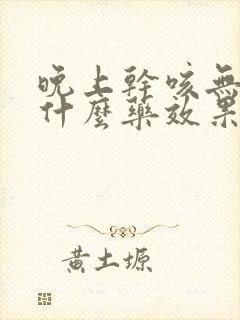 晚上幹咳無
什麼藥效果
黃土塬